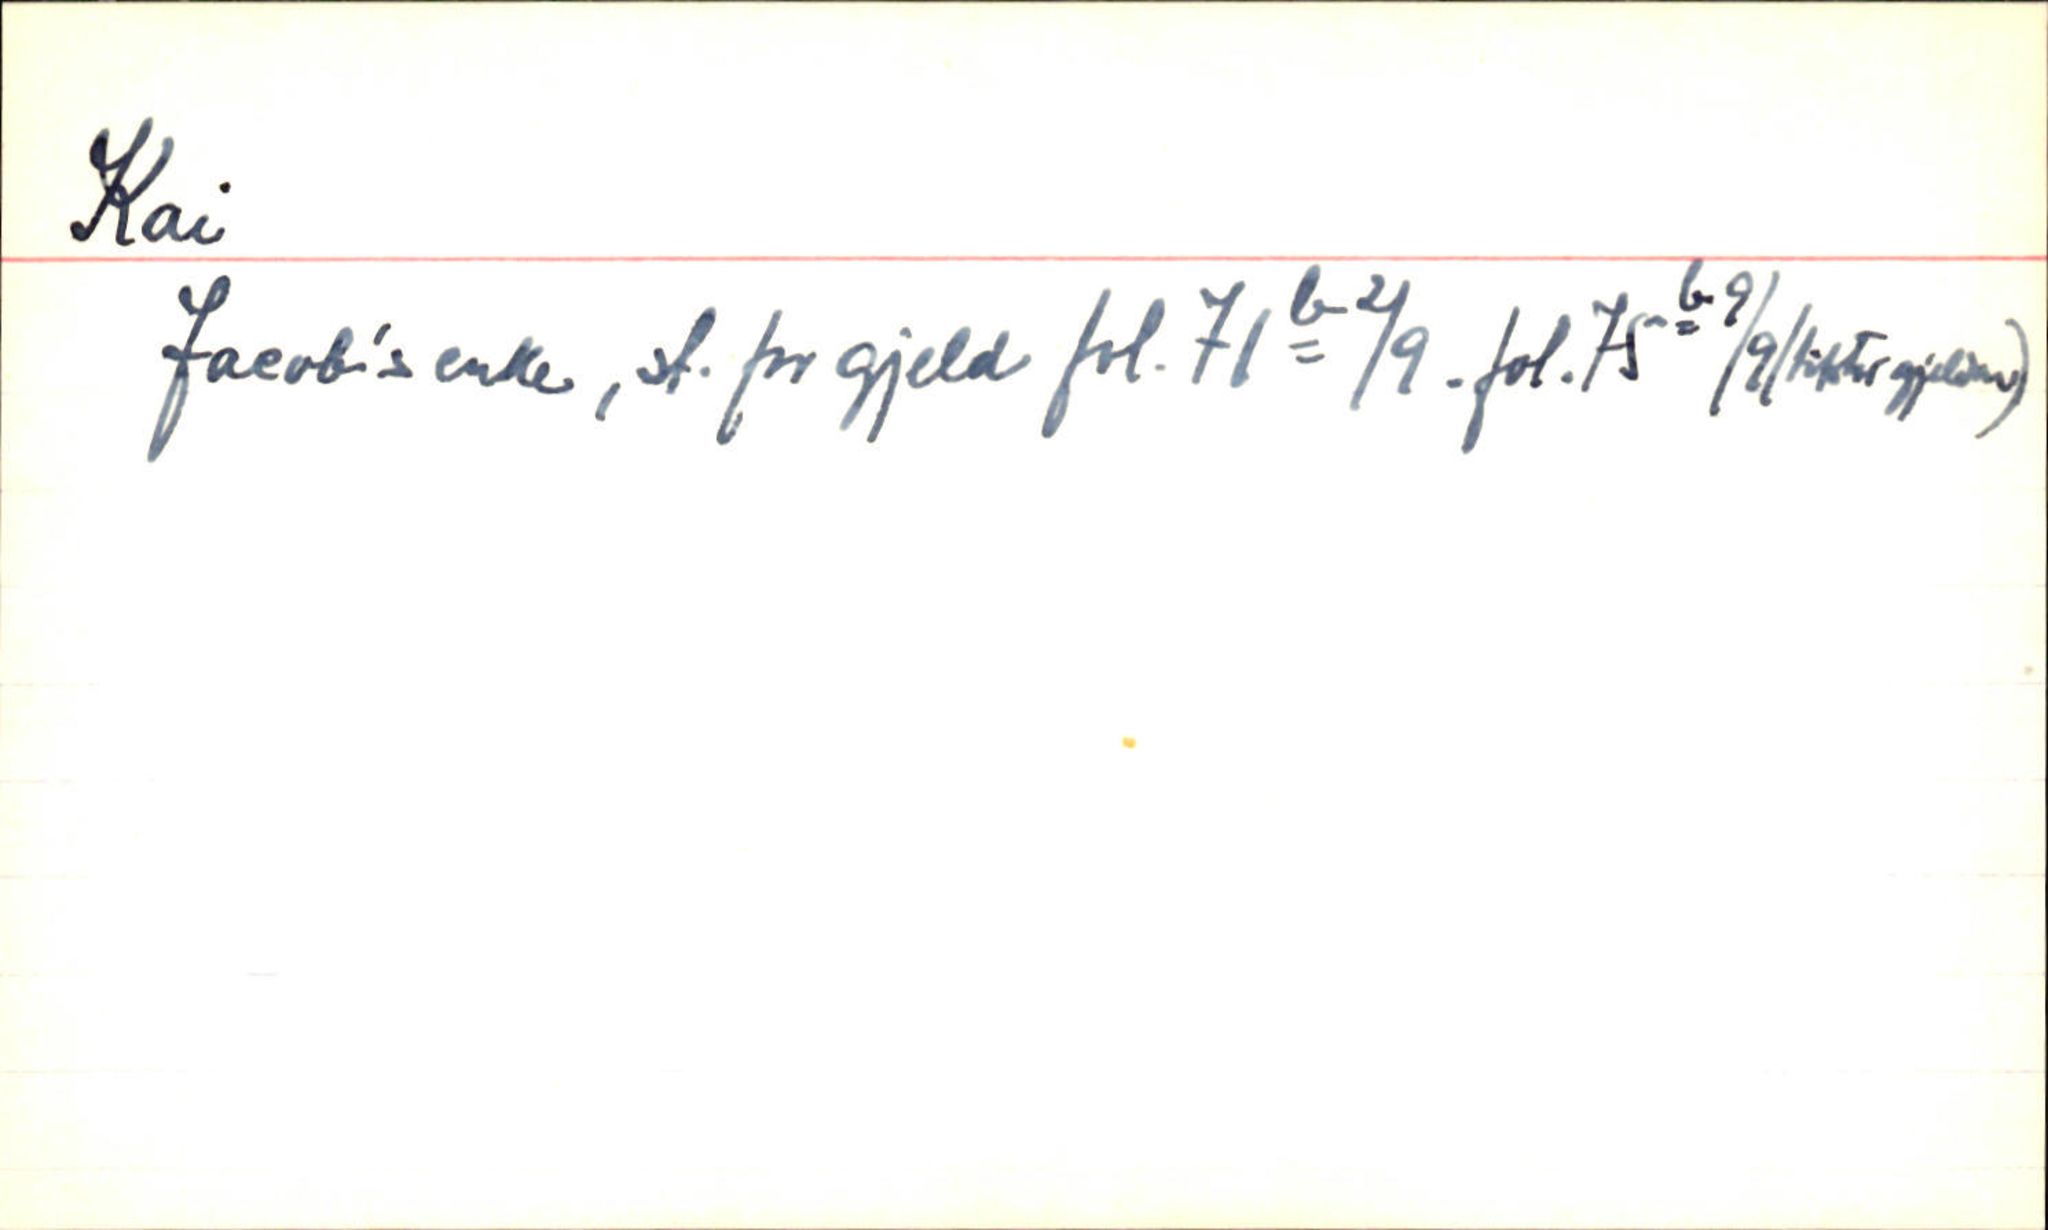 Kai
Jacob's enke, st. for gjeld fol. 71 b 2/9. fol. 75 b 9/9 (tilstår gjelden)